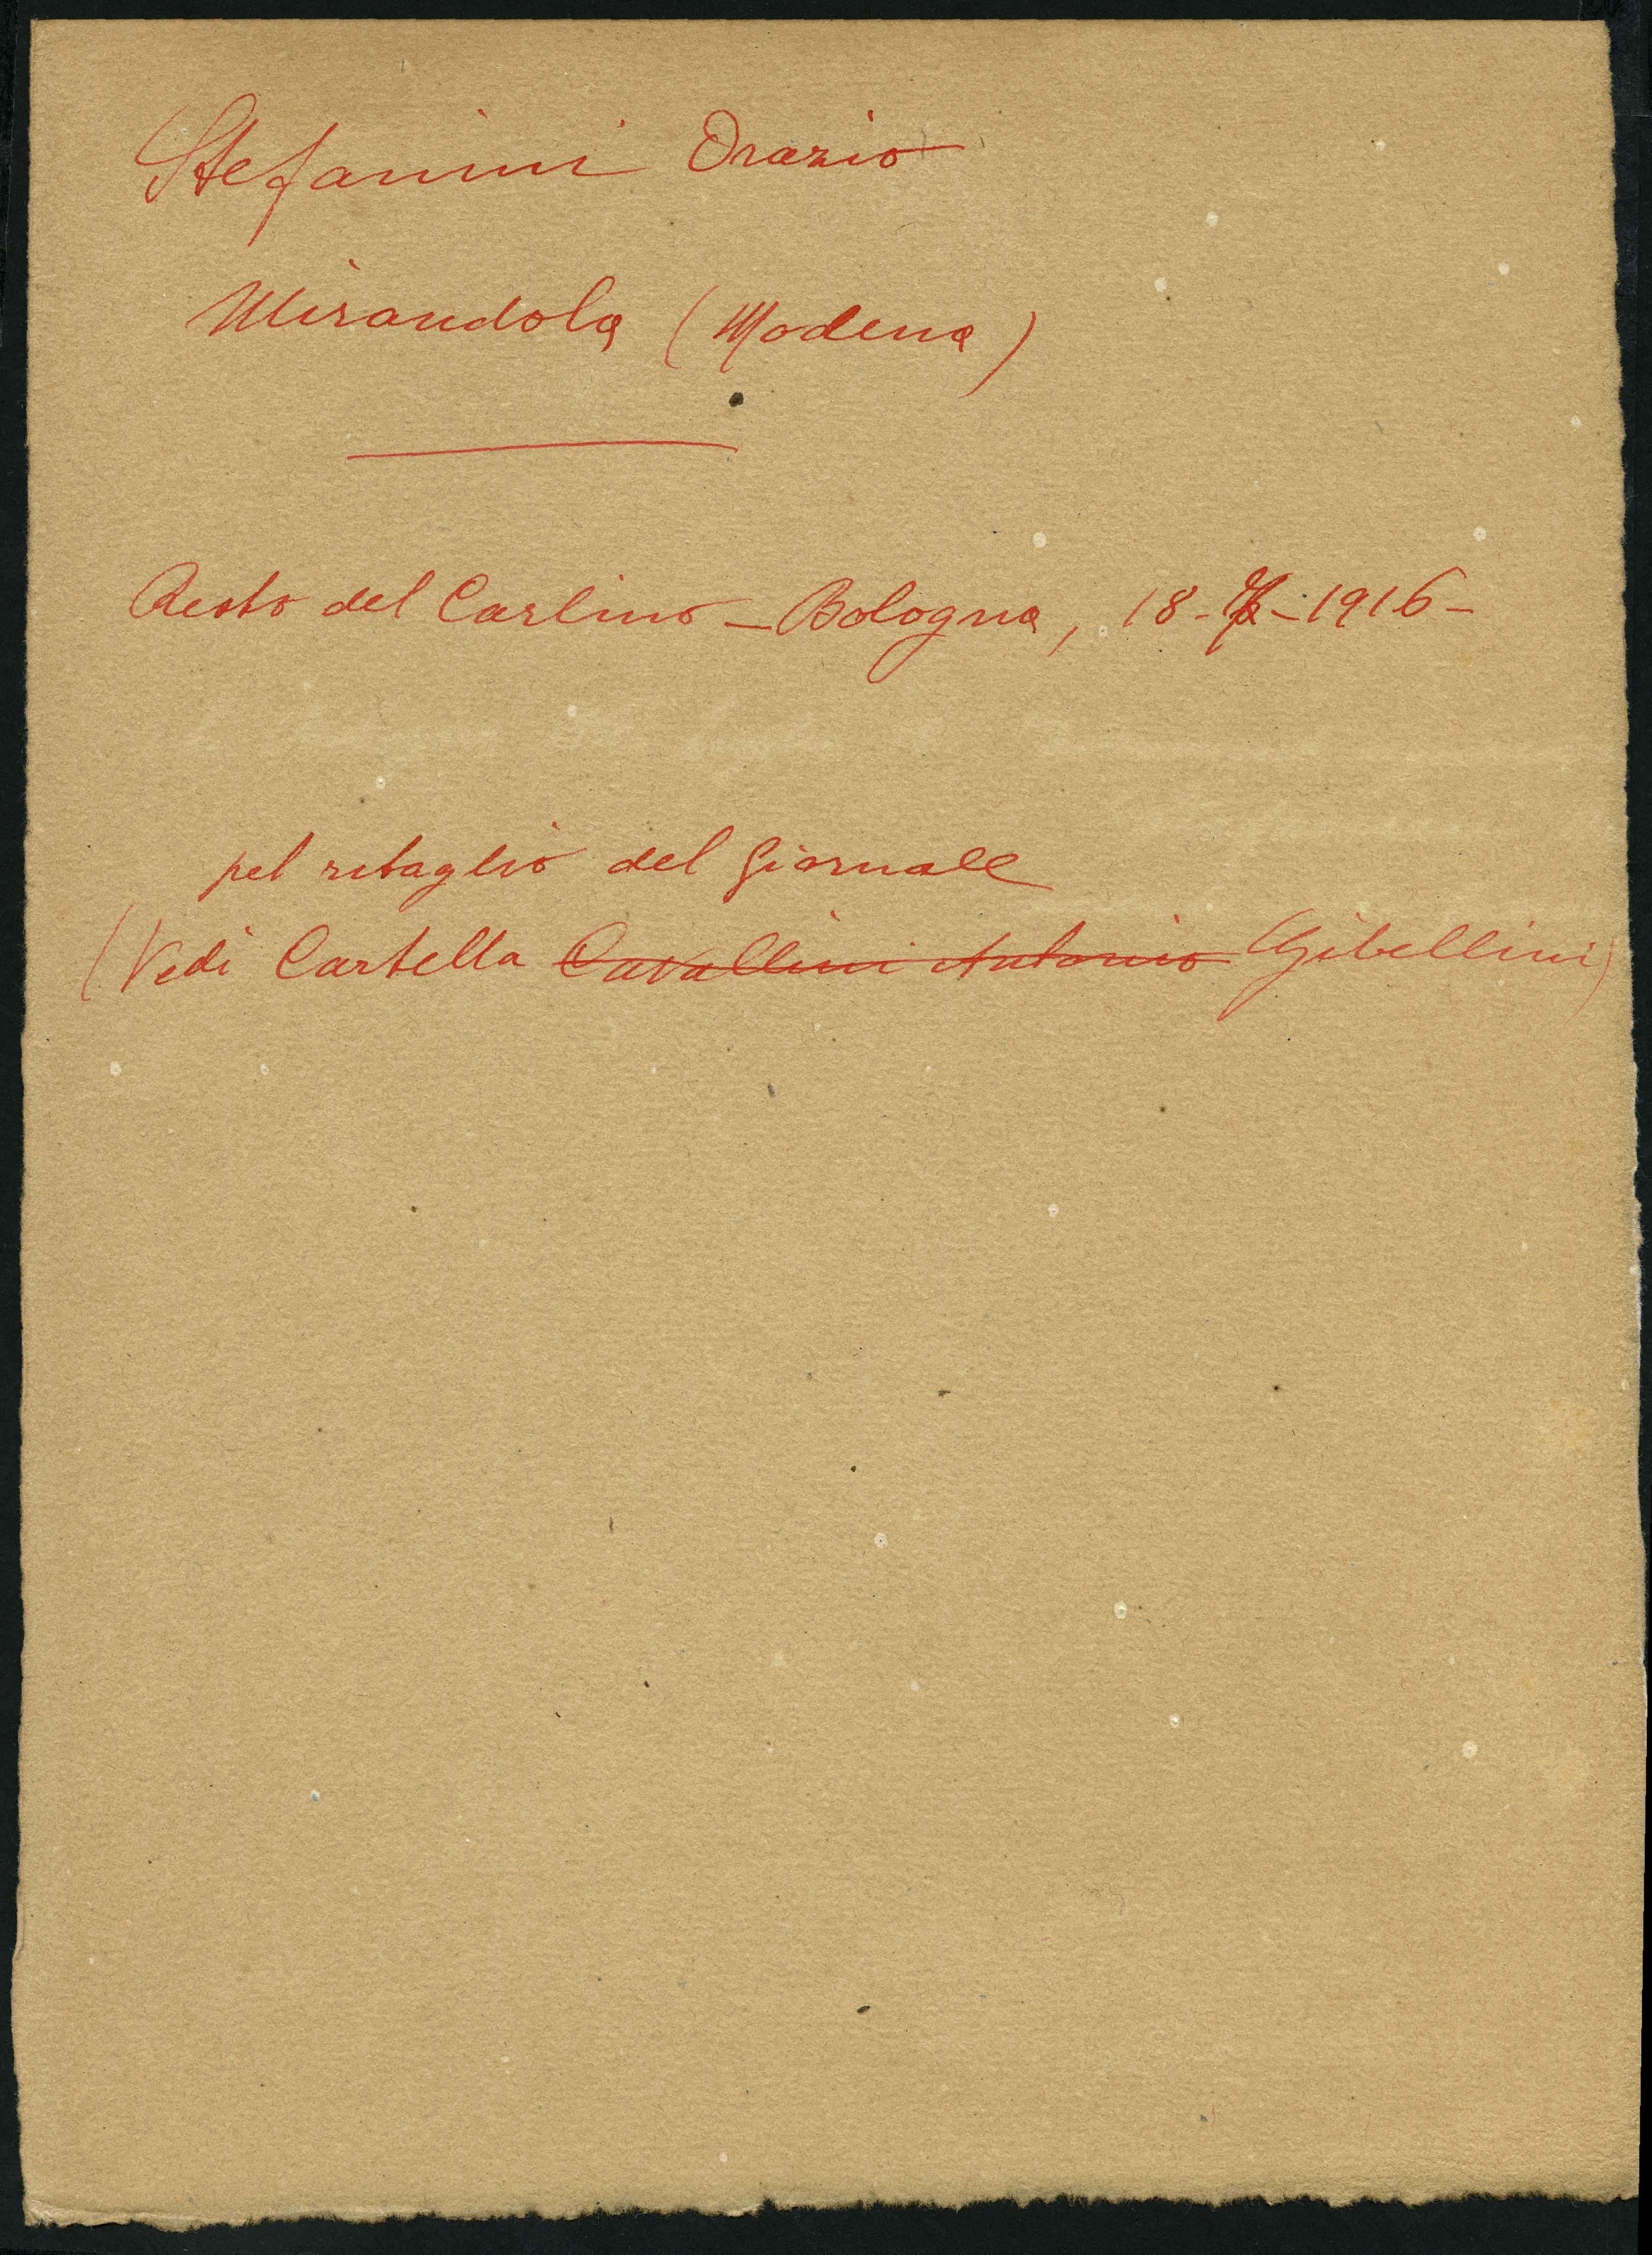 Stefanini Orazio
Mirandola (Modena)
Resto del Carlino – Bologna, 18 - - 1916 –
pel ritaglio del Giornale
(Vedi Cartella Cavallini Antonio Gibellini)